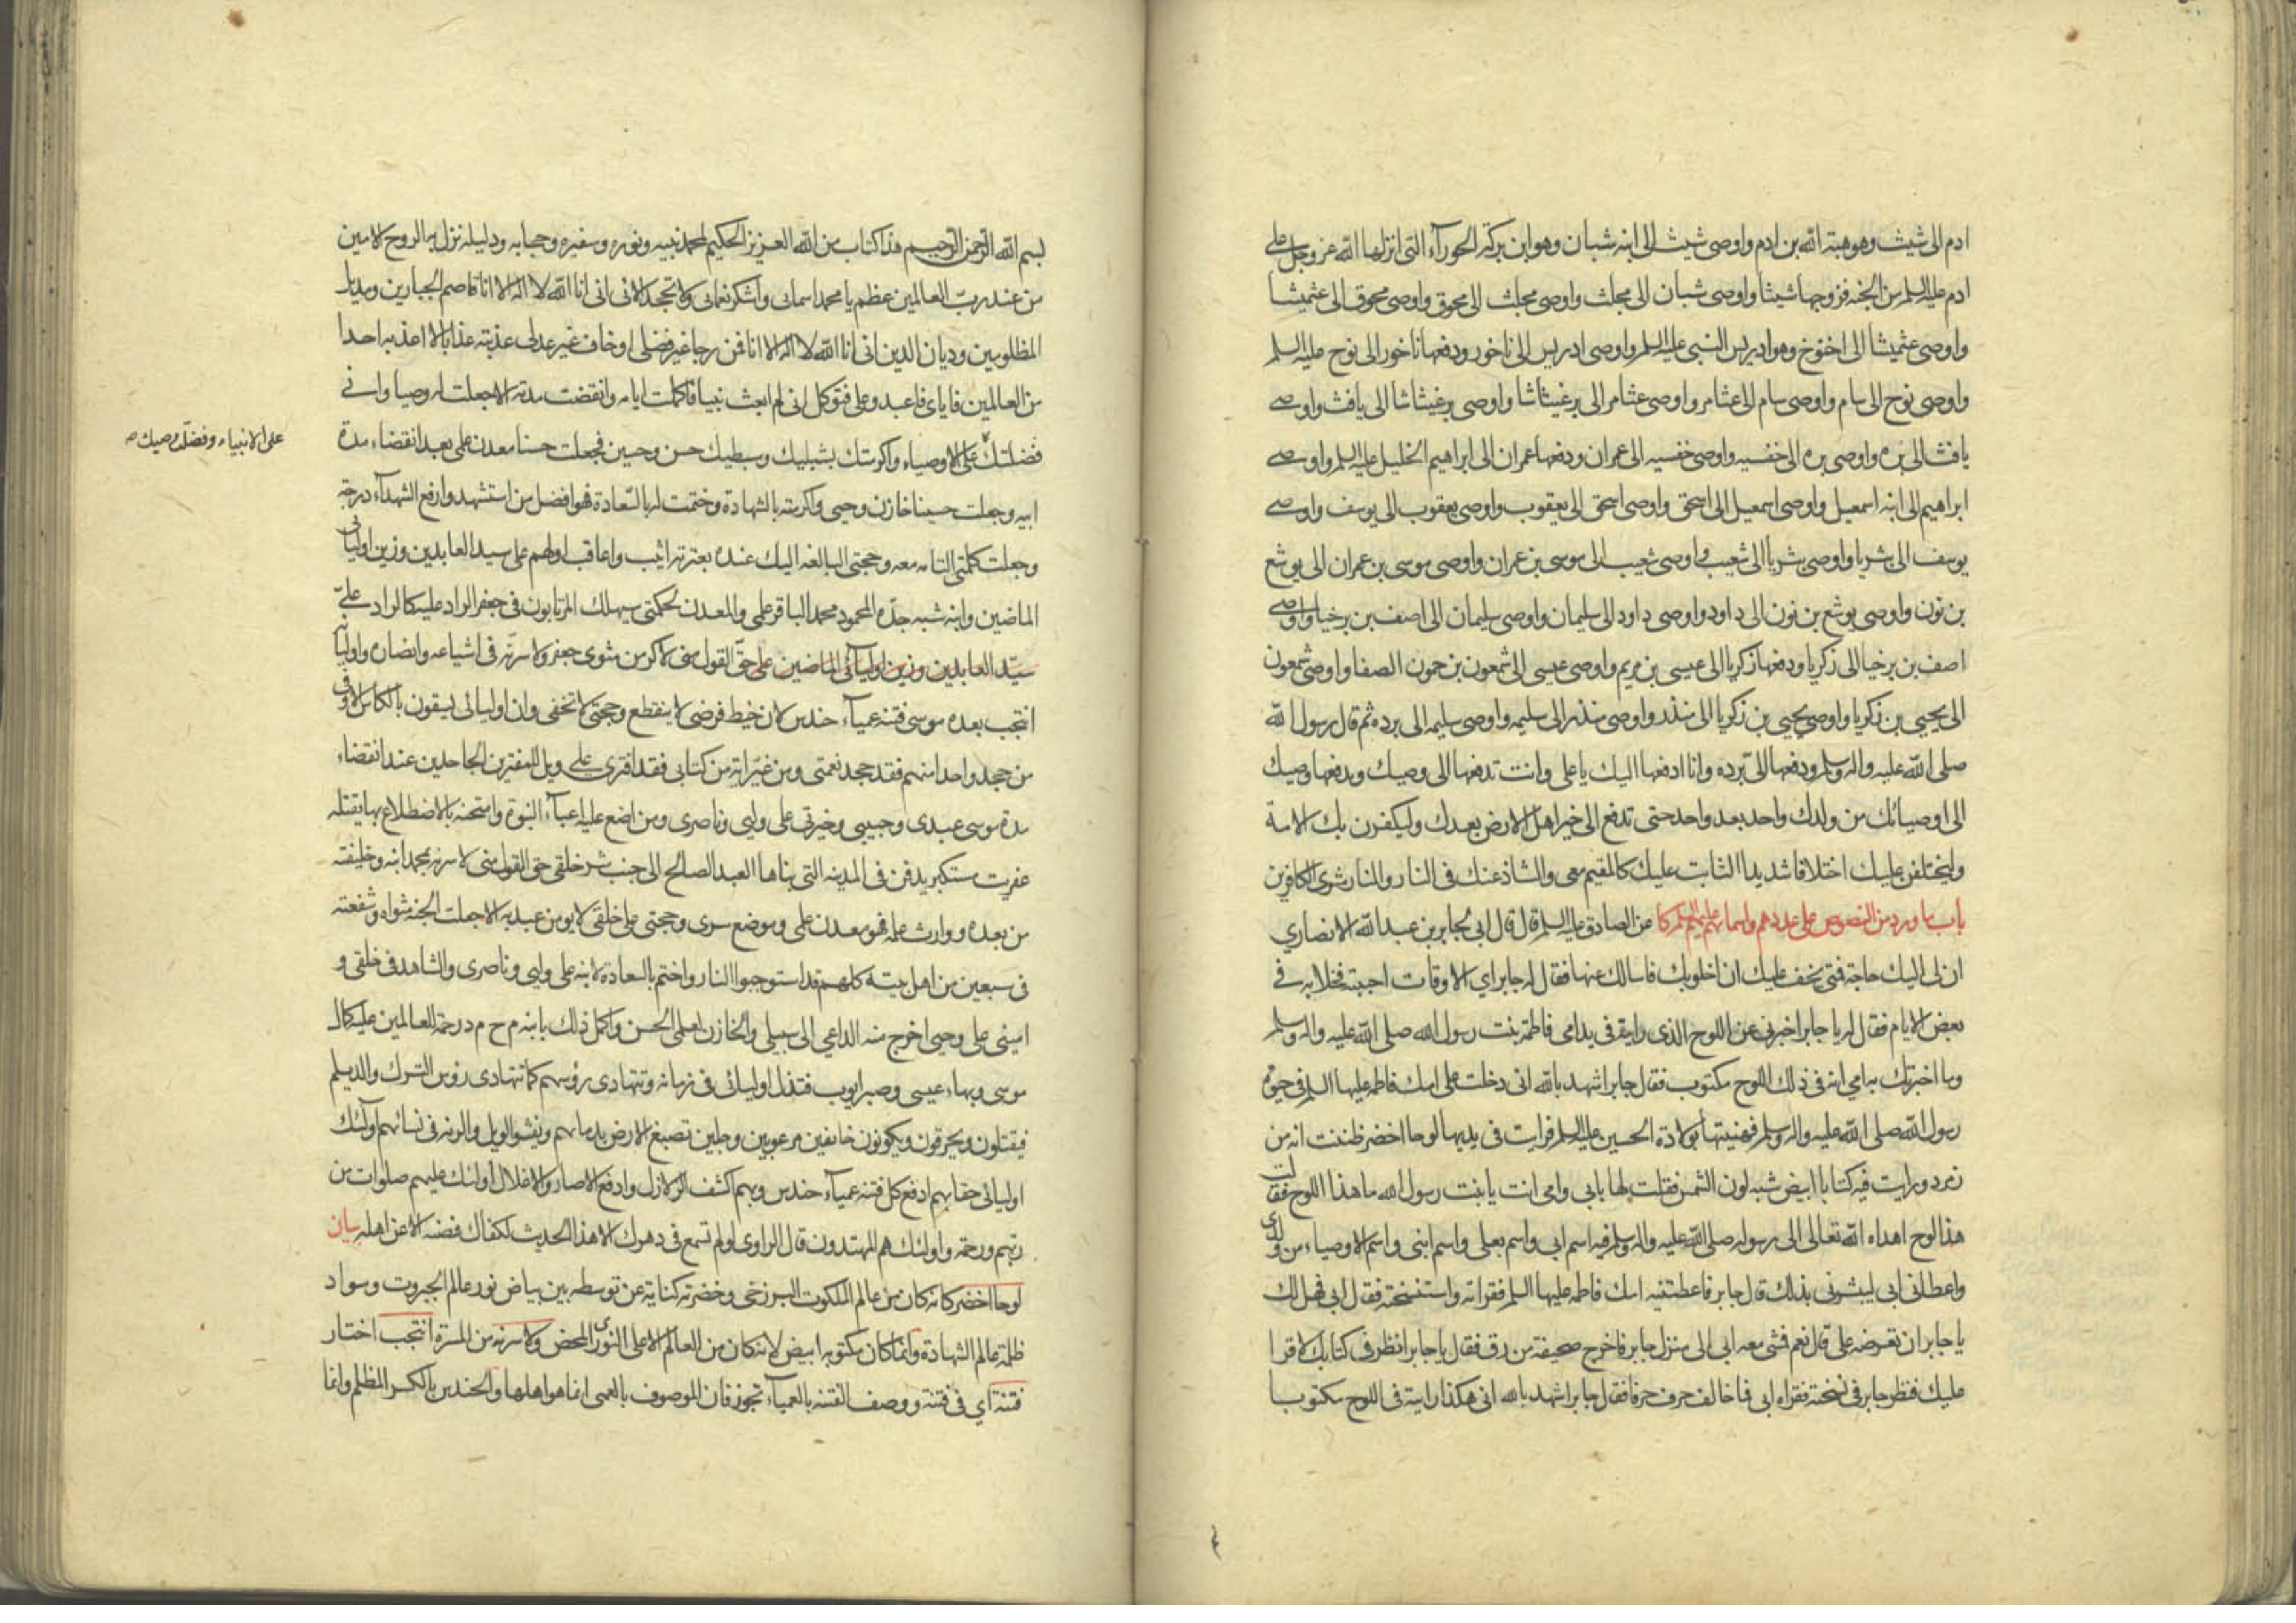 ادم الى شيث وهو هبة الله بن ادم واوصى شيث الى ابنه شبان وهو ابن بركة الحورآء التى انزلها الله عز وجل على
ادم عليه السلم من الجنه فزوجها شيثا واوصى شبان الى مجلث واوصى مجلث الى محوق واوصى محوق الى عثميشا
واوصى عثميشا الى اخنوخ وهو ادريس النبى عليه السلم واوصى ادريس الى ناخور ودفعها ناخور الى نوح عليه السلم
واوصى نوح الى سام واوصى سام الى عثامر واوصى عثامر الى برغيثاشا واوصى برغيثاشا الى يافث واوصى
يافث الى بره واوصى بره الى خفسيه واوصى خفسيه الى عمران ودفعها عمران الى ابراهيم الخليل عليه السلم واوصى
ابراهيم الى ابنه اسمعيل واوصى اسمعيل الى اسحق واوصى اسحق الى يعقوب واوصى يعقوب الى يوسف واوصى
يوسف الى بثريا واوصى بثريا الى شعيب واوصى شعيب الى موسى بن عمران واوصى موسى بن عمران الى يوشع
بن نون واوصى يوشع بن نون الى داود واوصى داود الى سليمان واوصى سليمان الى اصف بن برخيا واوصى
اصف بن برخيا الى زكريا ودفعها زكريا الى عيسى بن مريم واوصى عيسى الى شمعون بن حمون الصفا واوصى شمعون
الى يحيى بن زكريا واوصى يحيى بن زكريا الى منذر واوصى منذر الى سليمه واوصى سليمه الى برده ثم قال رسول الله
صلى الله عليه واله وسلم ودفعها الى برده وانا ادفعها اليك يا على وانت تدفعها الى وصيك ويدفعها وصيك
الى اوصيائك من ولدك واحد بعد واحد حتى تدفع الى خير اهل الارض بعدك وليكفرن بك الامة
وليختلفن عليك اختلافا شديدا الثابت عليك كالمقيم معى والشاذ عنك فى النار والنار مثوى الكافرين
باب ما ورد من النصوص على عددهم واسمائهم عليهم السلم كا عن الصادق عليه السلم قال قال ابى لجابر بن عبد الله الانصاري
ان لى اليك حاجة فمتى يخف عليك ان اخلو بك فاسالك عنها فقال له جابر اي الاوقات احببته فخلا به فى
بعض الايام فقال له يا جابر اخبرنى عن اللوح الذى رايته فى يد امى فاطمة بنت رسول الله صلى الله عليه واله وسلم
وما اخبرتك به امي انه فى ذلك اللوح مكتوب فقال جابر اشهد بالله انى دخلت على امك فاطمه عليها السلم فى حيوة
رسول الله صلى الله عليه واله وسلم فهنيتها بولادة الحسين عليه السلم فرايت فى يديها لوحا اخضر ظننت انه من
زمرد ورايت فيه كتابا ابيض شبه لون الشمس فقلت لها بابى وامى انت يا بنت رسول الله ما هذا اللوح فقالت
هذا لوح اهداه الله تعالى الى رسوله صلى الله عليه واله وسلم فيه اسم ابى واسم بعلى واسم ابنى واسم الاوصياء من ولدى
واعطانى ابى ليبشرنى بذلك قال جابر فاعطتنيه امك فاطمه عليها السلم فقراته واستنسخته فقال ابى فهل لك
يا جابر ان تعرضه على قال نعم فمشى معه ابى الى منزل جابر فاخرج صحيفة من رق فقال يا جابر انظر فى كتابك لاقرا
عليك فنظر جابر فى نسخته فقراه ابى فما خالف حرف حرفا فقال جابر اشهد بالله انى هكذا رايته فى اللوح مكتوبا
بسم الله الرحمن الرحيم هذا كتاب من الله العزيز الحكيم لمحمد نبيه ونوره وسفيره وحجابه ودليله نزل به الروح الامين
من عند رب العالمين عظم يا محمد اسمائى واشكر نعمائى ولا تجحد الائى انى انا الله لا اله الا انا قاصم الجبارين ومديل
المظلومين وديان الدين انى انا الله لا اله الا انا فمن رجا غير فضلى او خاف غير عدلى عذبته عذابا لا اعذبه احدا
من العالمين فاياى فاعبد وعلى فتوكل انى لم ابعث نبيا فاكملت ايامه وانقضت مدته الا جعلت له وصيا وانى
فضلتك على الاوصياء واكرمتك بشبليك وسبطيك حسن وحسين فجعلت حسنا معدن علمى بعد انقضاء مدة
على الانبياء وفضلت وصيك ص
ابيه وجعلت حسينا خازن وحيى واكرمته بالشهادة وختمت له بالسعادة فهو افضل من استشهد وارفع الشهدآء درجة
وجعلت كلمتى التامه معه وحجتى البالغه اليك عنده بعترته اثيب واعاقب اولهم على سيد العابدين وزين اوليائى
الماضين وابنه شبه جده المحمود محمد الباقر علمى والمعدن لحكمتى سيهلك المرتابون فى جعفر الراد عليه كالراد على
سيد العابدين وزين اوليائى الماضين على حق القول منى لاكرمن مثوى جعفر ولاسرنه فى اشياعه وانصاره واوليائه
انتجب بعده موسى فتنة عميآء حندس لان خيط فرضى لا ينقطع وحجتى لا تخفى وان اوليائى يسقون بالكاس الاوفى
من جحد واحدا منهم فقد جحد نعمتى ومن غير اية من كتابى فقد افترى على ويل للمفترين الجاحدين عند انقضاء
مدة موسى عبدى وحبيبى وخيرتى على وليى وناصرى ومن اضع عليه اعبآء النبوة وامتحنه بالاضطلاع بها يقتله
عفريت مستكبر يدفن فى المدينه التى بناها العبد الصالح الى جنب شر خلقى حق القول منى لاسرنه بمحمد ابنه وخليفته
من بعده ووارث علمه فهو معدن علمى وموضع سرى وحجتى على خلقى لا يومن عبد به الا جعلت الجنه مثواه وشفعته
فى سبعين من اهل بيته كلهم قد استوجبوا النار واختم بالسعادة لابنه على وليى وناصرى والشاهد فى خلقى و
امينى على وحيى اخرج منه الداعي الى سبيلى والخازن لعلمى الحسن واكمل ذلك بابنه م ح م د رحمة للعالمين عليه كمال
موسى وبهاء عيسى وصبر ايوب فتذل اوليائى فى زمانه وتتهادى رؤسهم كما تتهادى رؤس الترك والديلم
فيقتلون ويحرقون ويكونون خائفين مرعوبين وجلين تصبغ الارض بدمائهم ويفشوا الويل والرنه فى نسائهم اولئك
اوليائى حقا بهم ادفع كل فتنة عميآء حندس وبهم اكشف الزلازل وادفع الاصار والاغلال اولئك عليهم صلوات من
ربهم ورحمة واولئك هم المهتدون قال الراوى لو لم تسمع فى دهرك الا هذا الحديث لكفاك فصنه الا عن اهله بيان
لوحا اخضر كانه كان من عالم الملكوت البرزخى وخضرته كناية عن توسطه بين بياض نور عالم الجبروت وسواد
ظلمة عالم الشهادة وانما كان مكتوبه ابيض لانه كان من العالم الاعلى النورى المحض ولاسرنه من المسرة انتجب اختار
فتنة اي فى فتنة ووصف الفتنه بالعميآء تجوز فان الموصوف بالعمى انما هو اهلها والحندس بالكسر المظلم وانما